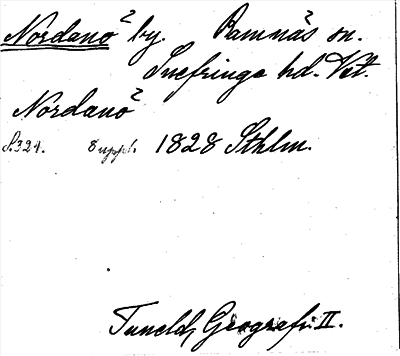 Nordanö by. Ramnäs sn.
Snefringe hd. Vst.
Nordanö
S.324. 8 uppl. 1828 Sthlm.
Tuneld, Geografi II.